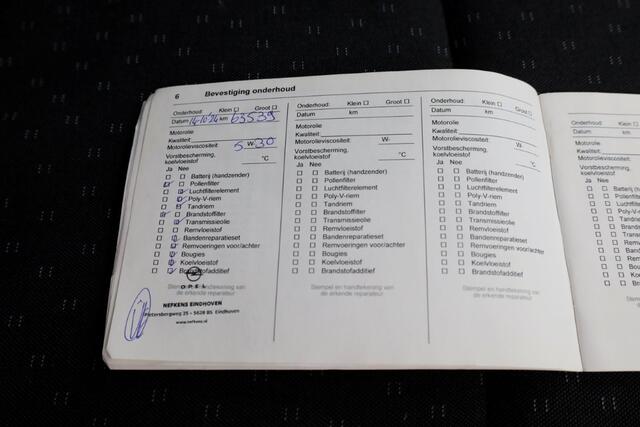 6 Bevestiging onderhoud
Onderhoud: Klein ☐ Groot ☐
Datum 14-10-'24 km 63539
Motorolie
Kwaliteit:
Motorolieviscositeit: 5 W- 30
Vorstbescherming,
koelvloeistof °C
Ja Nee
Batterij (handzender)
Pollenfilter
Luchtfilterelement
Poly-V-riem
Tandriem
Brandstoffilter
Transmissieolie
Remvloeistof
Bandenreparatieset
Remvoeringen voor/achter
Bougies
Koelvloeistof
Brandstofadditief
Stempel en handtekening van
de erkende reparateur
OPEL
NEFKENS EINDHOVEN
Pietersbergweg 25 - 5628 BS Eindhoven
www.nefkens.nl
Onderhoud: Klein ☐ Groot ☐
Datum km
Motorolie
Kwaliteit:
Motorolieviscositeit: W-
Vorstbescherming,
koelvloeistof °C
Ja Nee
Batterij (handzender)
Pollenfilter
Luchtfilterelement
Poly-V-riem
Tandriem
Brandstoffilter
Transmissieolie
Remvloeistof
Bandenreparatieset
Remvoeringen voor/achter
Bougies
Koelvloeistof
Brandstofadditief
Stempel en handtekening van
de erkende reparateur
Onderhoud: Klein ☐ Groot ☐
Datum km
Motorolie
Kwaliteit:
Motorolieviscositeit: W-
Vorstbescherming,
koelvloeistof °C
Ja Nee
Batterij (handzender)
Pollenfilter
Luchtfilterelement
Poly-V-riem
Tandriem
Brandstoffilter
Transmissieolie
Remvloeistof
Bandenreparatieset
Remvoeringen voor/achter
Bougies
Koelvloeistof
Brandstofadditief
Stempel en handtekening van
de erkende reparateur